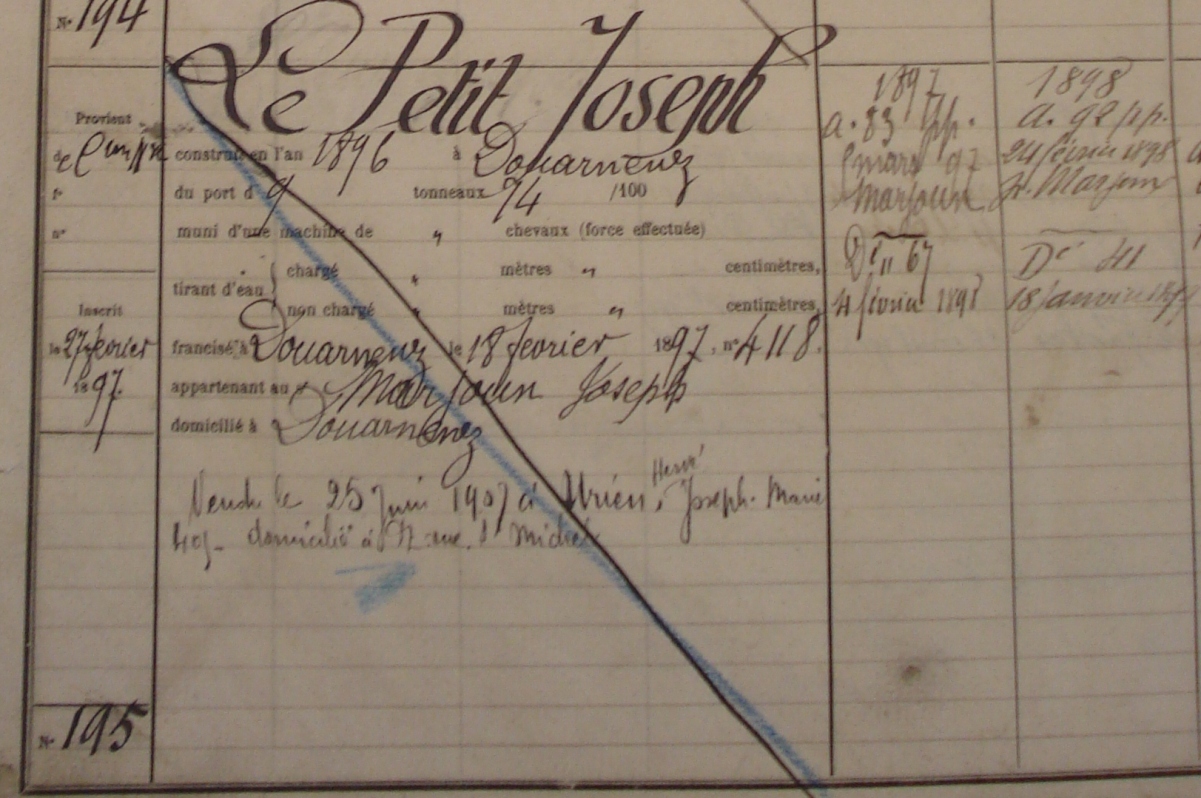 N° 194
Le Petit Joseph
Provient
de
f°
n°
Inscrit
le 27 fevrier
1897
construit en l'an 1896 à Douarnenez
du port d 9 tonneaux 94 /100
muni d'une machine de " chevaux (force effectuée)
tirant d'eau
chargé " mètres " centimètres,
non chargé " mètres " centimètres,
francisé à Douarnenez le 18 fevrier 1897, n° 4118.
appartenant au sr Marjouin Joseph
domicilié à Douarnenez
Hervé
Vendu le 25 Juin 1907 à Urien, Joseph-Marie
domicilié à 17 rue St Michel
1897
a. 83 pp.
mars 97
Marjouin
Dt 67
4 février 1898
1898
a. 92 pp.
24 février 1898
Jh. Marjouin
Dt 41
18 janvier
N° 195